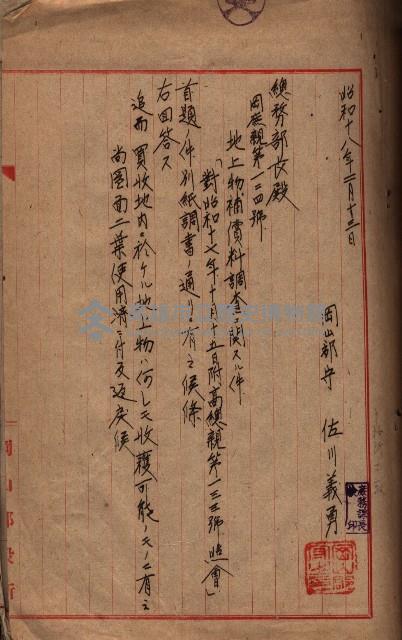 昭和十八年二月十三日
岡山郡守 佐川義勇
總務部長殿
岡庶親第一二四號
地上物補償料調査ニ関スル件
「對昭和十七年十二月十五日附高總親第一三五號照會」
首題ノ件別紙調書ノ通リ有之候條
右回答ス
追而買收地内ニ於ケル地上物ハ何レモ收穫可能ノモノニ有之
尚圖面二葉使用濟ニ付及返戻候
岡山郡役所
庶務課長
印
高雄市立歷史博物館